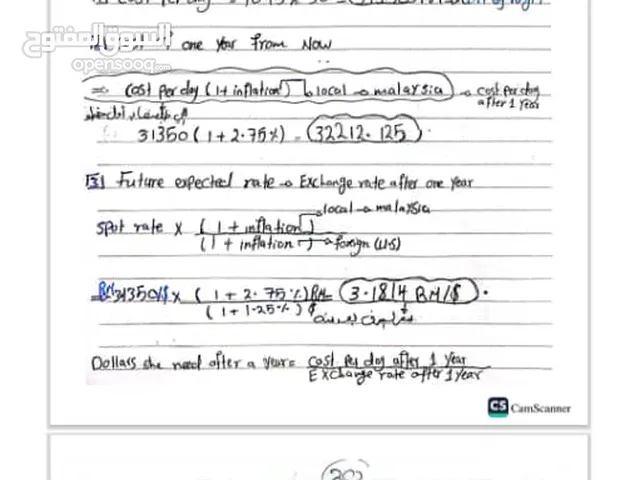 cost per day
السوق المفتوح
opensooq.com
one year from now
⇒ cost per day (1+ inflation) local → malaysia → cost per day after 1 year
31350 (1+2.75%) = 32212.125
[3] Future expected rate → Exchange rate after one year
local → malaysia
spot rate × (1 + inflation)
(1 + inflation → foreign (US)
× (1 + 2.75%) RM = 3.1814 RM/$
(1 + 1.25%) $
Dollars she need after a year = cost per day after 1 year
Exchange rate after 1 year
CS CamScanner